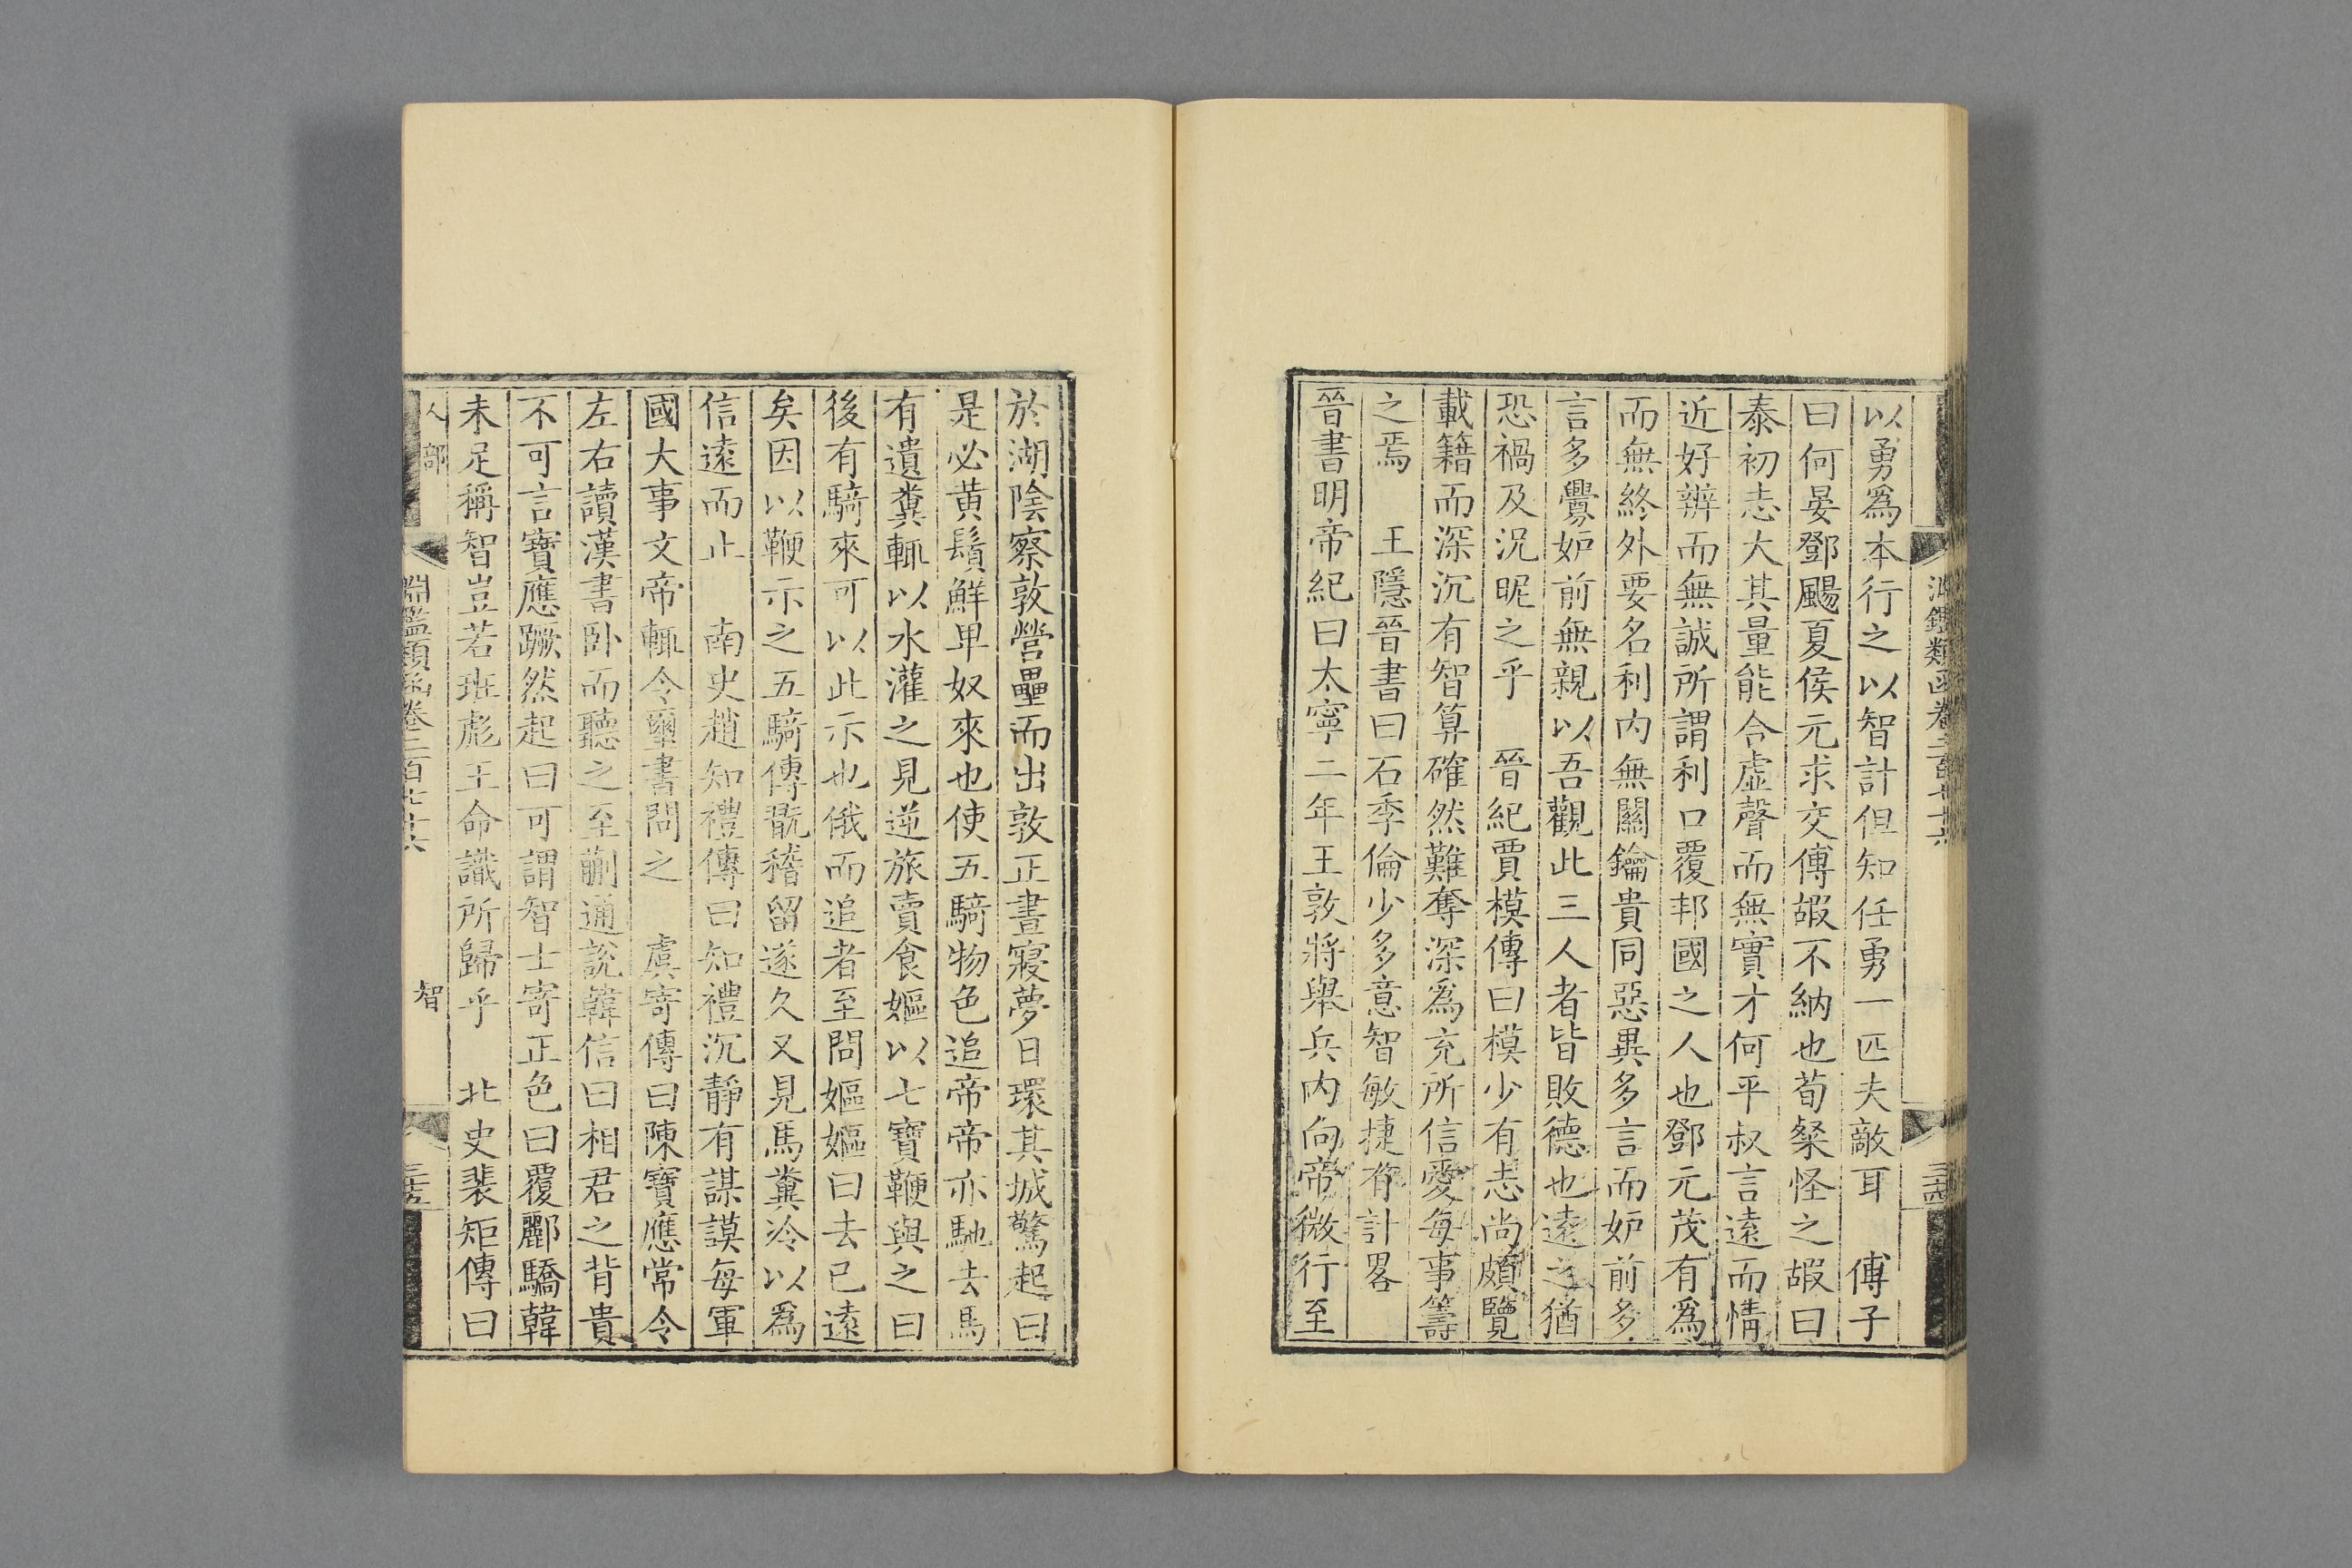 淵鑑類函卷二百七十六
三十四
以勇爲本行之以智計但知任勇一匹夫敵耳　傅子
曰何晏鄧颺夏侯元求交傅嘏不納也荀粲怪之嘏曰
泰初志大其量能合虛聲而無實才何平叔言遠而情
近好辨而無誠所謂利口覆邦國之人也鄧元茂有爲
而無終外要名利內無關鑰貴同惡異多言而妒前多
言多釁妒前無親以吾觀此三人者皆敗德也遠之猶
恐禍及況昵之乎　晉紀賈模傳曰模少有志尚頗覽
載籍而深沉有智算確然難奪深爲充所信愛每事籌
之焉　王隱晉書曰石季倫少多意智敏捷有計畧
晉書明帝紀曰太寧二年王敦將舉兵內向帝微行至
於湖陰察敦營壘而出敦正晝寢夢日環其城驚起曰
是必黄鬚鮮卑奴來也使五騎物色追帝帝亦馳去馬
有遺糞輒以水灌之見逆旅賣食嫗以七寶鞭與之曰
後有騎來可以此示也俄而追者至問嫗嫗曰去已遠
矣因以鞭示之五騎傳翫稽留遂久又見馬糞冷以爲
信遠而止　南史趙知禮傳曰知禮沉靜有謀謨每軍
國大事文帝輒令璽書問之　虞寄傳曰陳寶應常令
左右讀漢書卧而聽之至蒯通說韓信曰相君之背貴
不可言寶應蹶然起曰可謂智士寄正色曰覆酈驕韓
未足稱智豈若班彪王命識所歸乎　北史裴矩傳曰
人部
淵鑑類函卷二百七十六
智
三十五